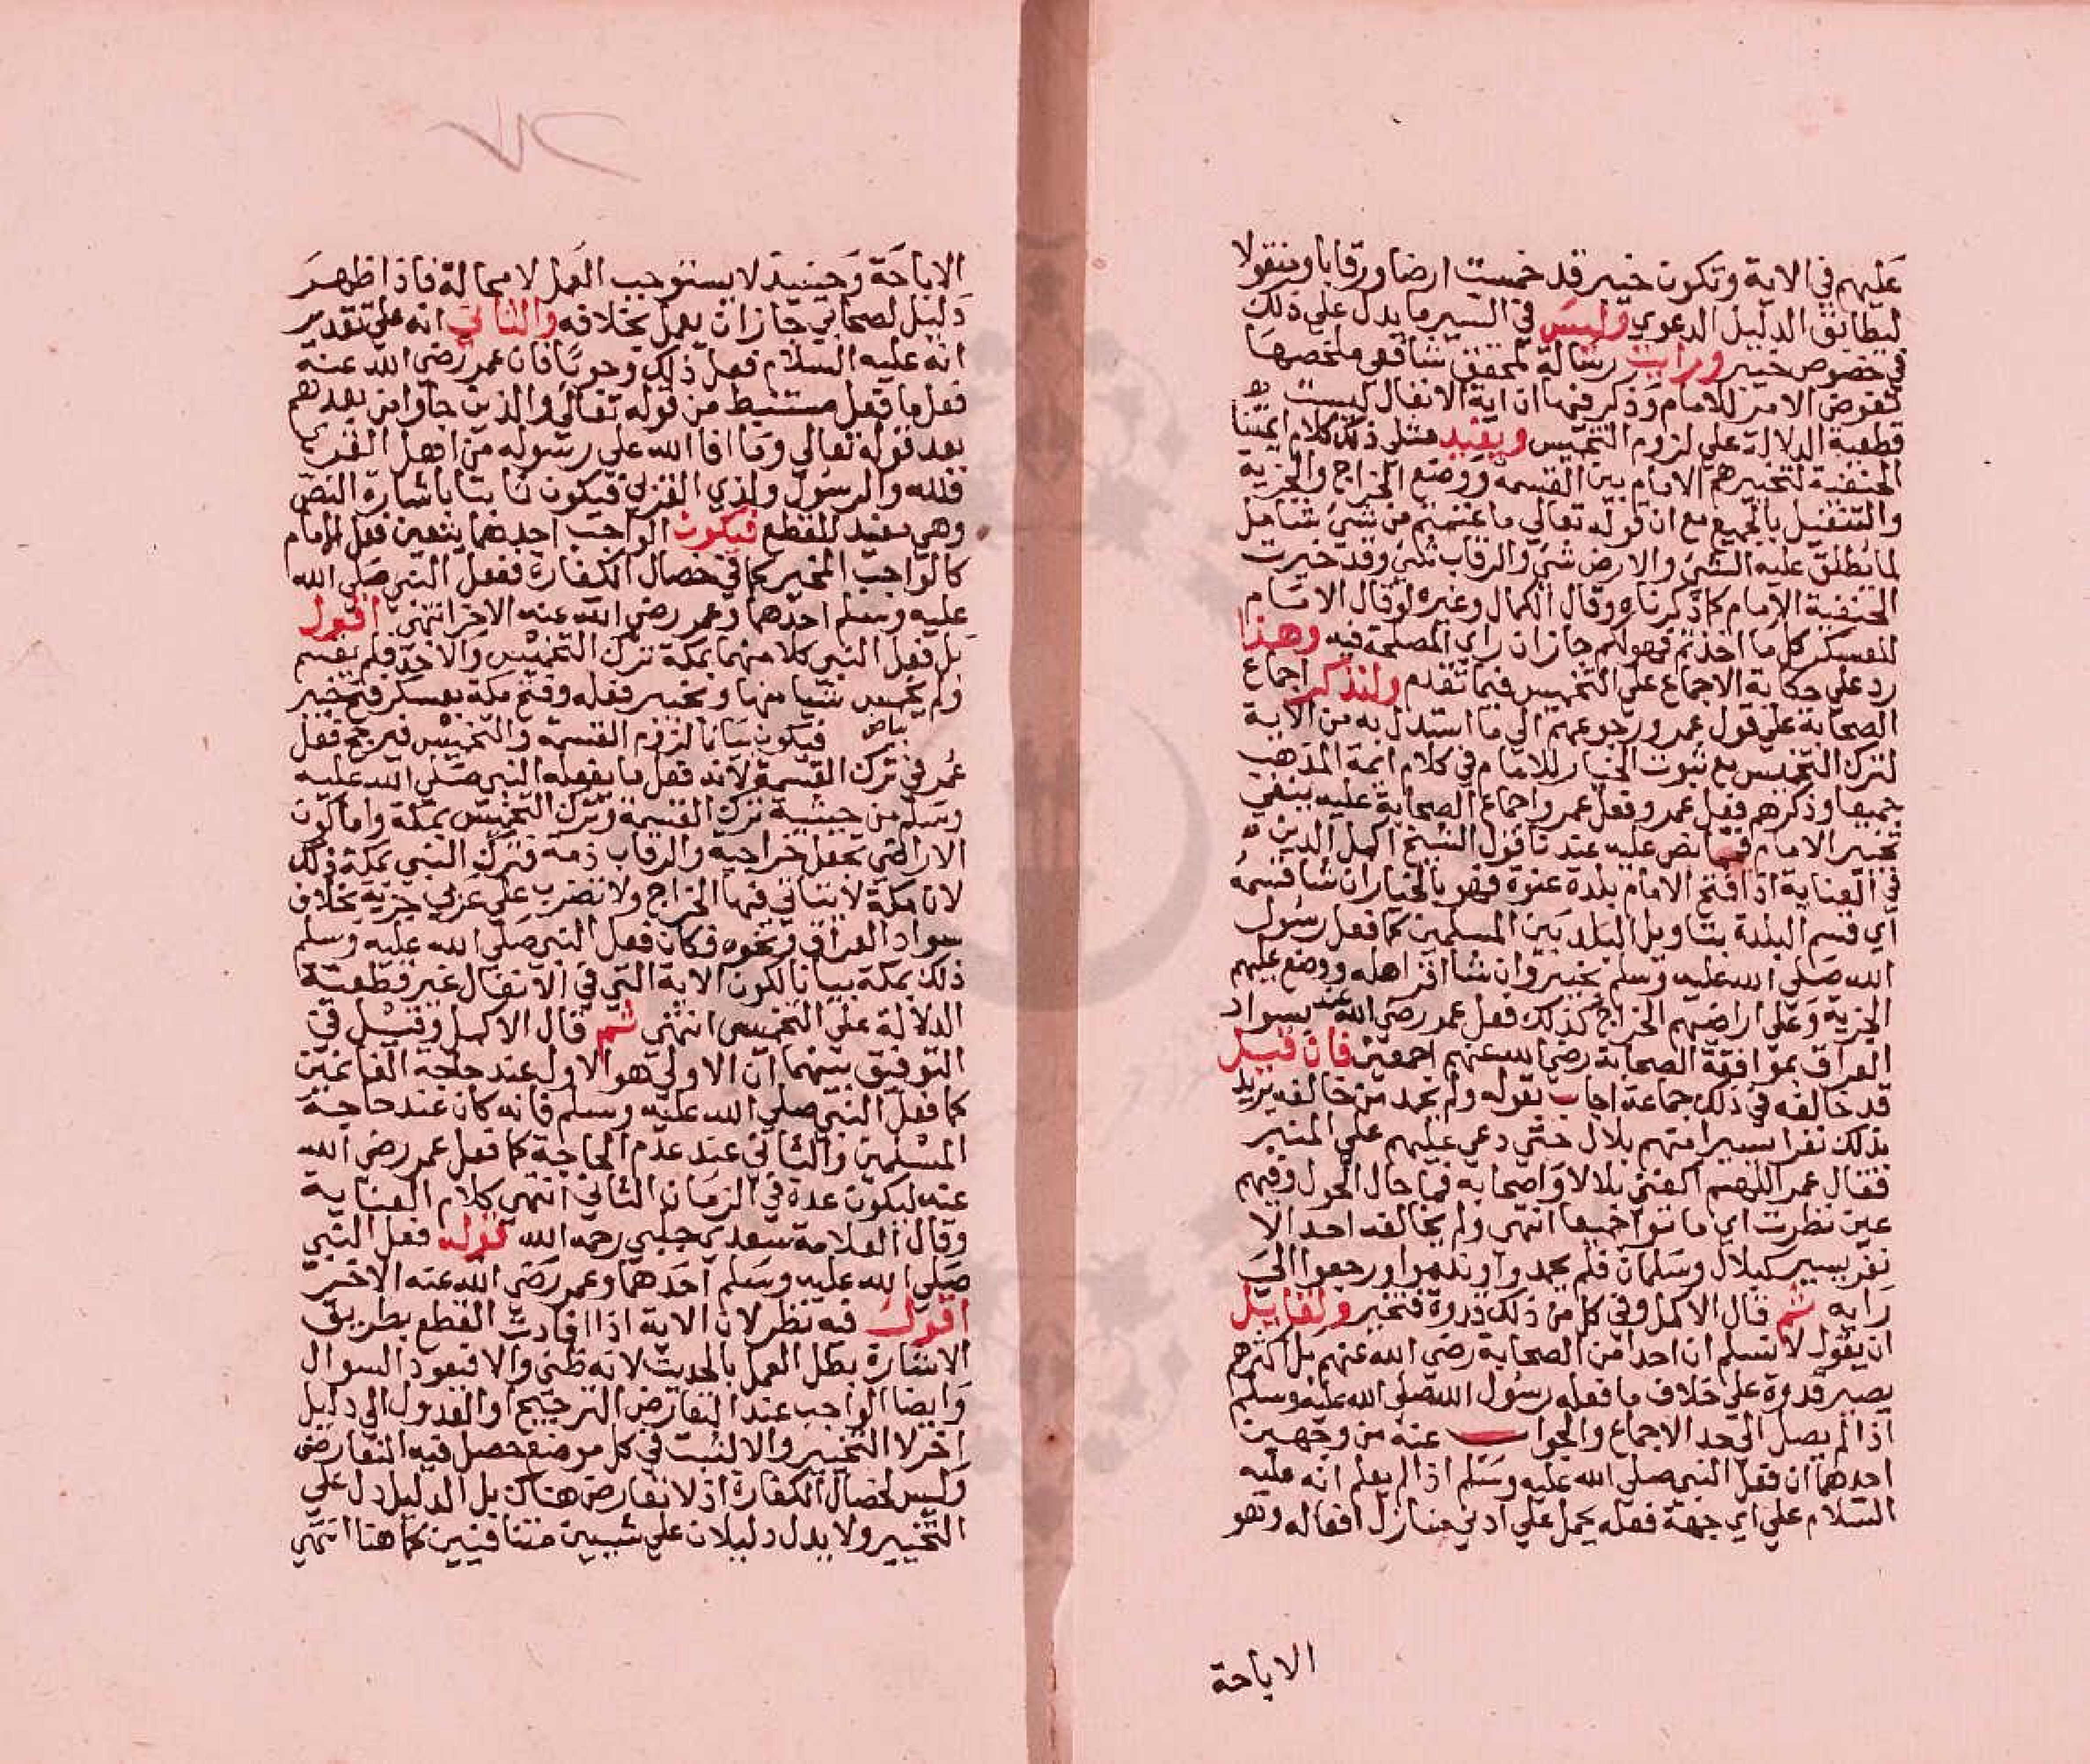 عليهم في الاية وتكون خيبر قد خمست ارضا ورقابا ومنقولا
ليطابق الدليل الدعوي وليس في السير ما يدل علي ذلك
في خصوص خيبر ورايت رسالة لمحقق شافعي ملخصها
تفويض الامر للامام وذكر فيها ان اية الانفال ليست
قطعية الدلالة علي لزوم التخميس ويفيد مثل ذلك كلام ايمتنا
الحنفية لتخييرهم الامام بين القسمة ووضع الخراج والجزية
والتنفيل بالجميع مع ان قوله تعالي ما غنمتم من شي شامل
لما يطلق عليه الشي والارض شي والرقاب شي وقد خيرت
الحنفية الامام كما ذكرناه وقال الكمال وغيره لو قال الامام
للعسكر كل ما اخذتم فهو لكم جاز ان راي المصلحة فيه وهذا
رد علي حكاية الاجماع علي التخميس فيما تقدم ولنذكر اجماع
الصحابة علي قول عمر ورجوعهم الي ما استدل به من الاية
لترك التخميس مع ثبوت الخيار للامام في كلام ايمة المذهب
جميعا وذكرهم فعل عمر وفعل عمر واجماع الصحابة عليه ينفي
تخيير الامام فيما نص عليه عندنا قول الشيخ اكمل الدين
في العناية اذا فتح الامام بلدة عنوة فهو بالخيار ان شا قسمه
اي قسم البلدة بتاويل البلد بين المسلمين كما فعل رسول
الله صلي الله عليه وسلم بخيبر وان شا اقر اهله ووضع عليهم
الجزية وعلي اراضيهم الخراج كذلك فعل عمر رضي الله عنه بسواد
العراق بموافقة الصحابة رضي الله عنهم اجمعين فان قيل
قد خالفه في ذلك جماعة اجاب بقوله ولم يحمد من خالفه يريد
بذلك نفرا يسيرا منهم بلال حتي دعي عليهم علي المنبر
فقال عمر اللهم اكفني بلالا واصحابه فما حال الحول وفيهم
عين تطرف اي ماتوا جميعا انتهي ولم يخالفه احد الا
نفر يسير كبلال وسلمان فلم يحمدوا وندموا ورجعوا الي
رايه ثم قال الاكمل وفي كل من ذلك قدوة فتخير ولقايل
ان يقول لا نسلم ان احدا من الصحابة رضي الله عنهم بل اكثرهم
يصير قدوة علي خلاف ما فعله رسول الله صلي الله عليه وسلم
اذا لم يصل الي حد الاجماع والجواب عنه من وجهين
احدهما ان فعل النبي صلي الله عليه وسلم اذا لم يعلم انه عليه
السلام علي اي جهة فعله يحمل علي ادني منازل افعاله وهو
الاباحة
الاباحة وحينيذ لا يستوجب العمل لا محالة فاذا ظهر
دليل لصحابي جاز ان يعمل بخلافه والثاني انه علي تقدير
انه عليه السلام فعل ذلك وجوبا فان عمر رضي الله عنه
فعل ما فعل مستنبط من قوله تعالي والذين جاوا من بعدهم
بعد قوله تعالي وما افا الله علي رسوله من اهل القري
فلله وللرسول ولذي القربي فيكون ثابتا باشارة النص
وهي تفيد القطع فيكون الواجب احدهما يتعين فعل الامام
كالواجب المخير كما في خصال الكفارة ففعل النبي صلي الله
عليه وسلم احدهما وعمر رضي الله عنه الاخر انتهي اقول
بل فعل النبي كلا منهما بمكة ترك التخميس فلم يقسم
ولم يخمس شيا منها وبخيبر فعله وفتح مكة بعسكر فتح خيبر
بياض فيكون بيانا لزوم القسمة والتخميس فيرجح فعل
عمر في ترك القسمة لانه فعل ما يفعله النبي صلي الله عليه
وسلم من حيثية ترك القسمة وترك التخميس بمكة واما كون
الاراضي تجعل خراجية والرقاب ذمة فترك النبي بمكة ذلك
لان مكة لا يتاتي فيها الخراج ولا تضرب علي عربي جزية بخلاف
سواد العراق ونحوه فكان فعل النبي صلي الله عليه وسلم
ذلك بمكة بيانا لكون الاية التي في الانفال غير قطعية
الدلالة علي التخميس انتهي ثم قال الاكمل وقيل في
التوفيق بينهما ان الاولي هو الاول عند حاجة الغانمين
كما فعل النبي صلي الله عليه وسلم فانه كان عند حاجة
المسلمين والثاني عند عدم الحاجة كما فعل عمر رضي الله
عنه ليكون عدة في الزمان الثاني انتهي كلام العناية
وقال العلامة سعدي جلبي رحمه الله قوله فعل النبي
صلي الله عليه وسلم احدهما وعمر رضي الله عنه الاخر
اقول فيه نظر لان الاية اذا افادت القطع بطريق
الاشارة بطل العمل بالحديث لانه ظني والا فيعود السوال
وايضا الواجب عند التعارض الترجيح او العدول الي دليل
اخر لا التخيير والا لثبت في كل موضع حصل فيه التعارض
وليس كخصال الكفارة اذ لا تعارض هناك بل الدليل دل علي
التخيير ولا يدل دليلان علي شيين متنافيين كما هنا انتهي